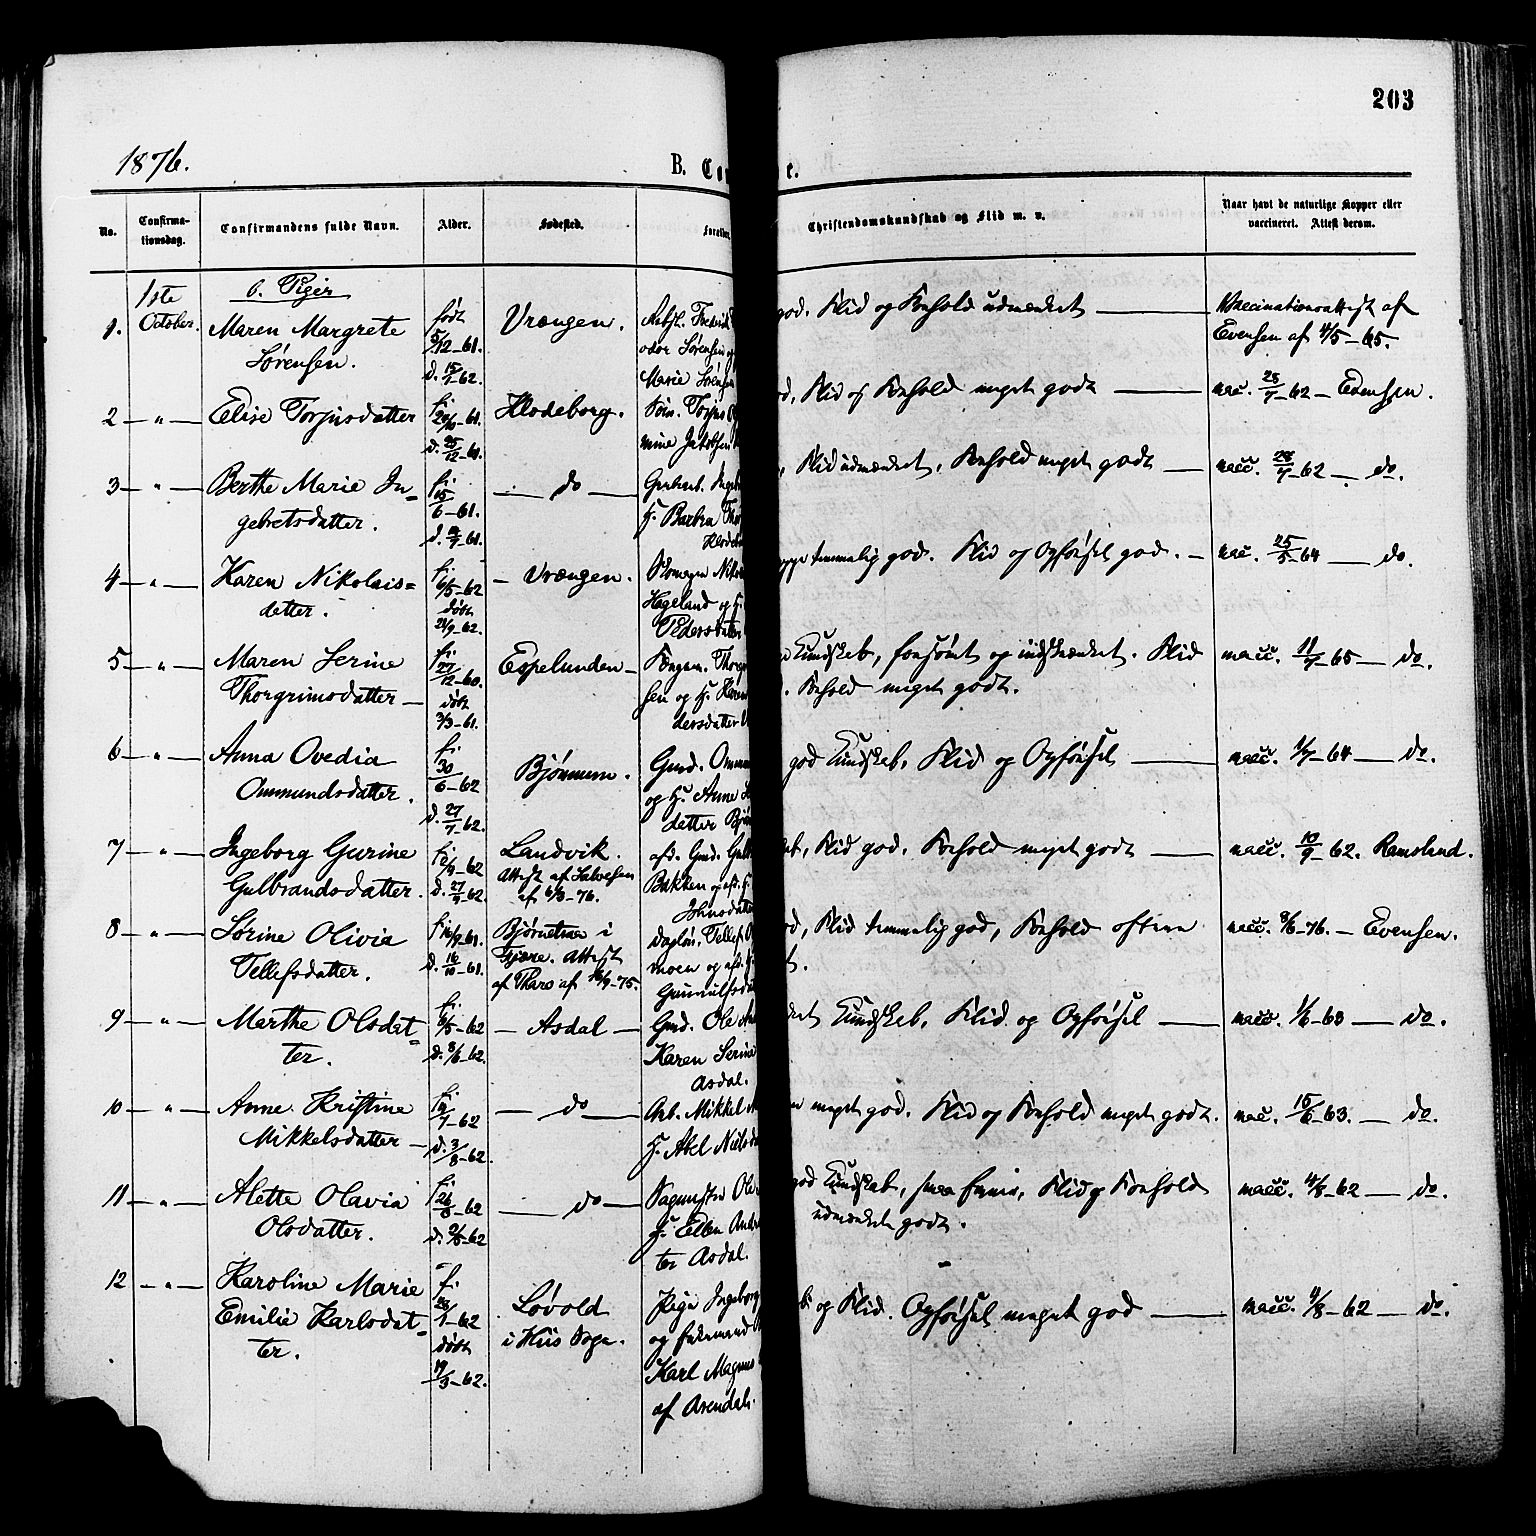 203
1876.
B. Con
e.
No.
Confirma-
tionsdag.
Confirmandens fulde Navn.
Alder.
Fødested.
Foreldre
Christendomskundskab og Flid m. v.
Naar havt de naturlige Kopper eller
vaccineret. Attest derom.
1ste
October.
b. Piger
1.
Maren Margrete
Sørensen.
født
5/12-61.
d. 15/1-62.
Vrængen.
Arbsf. Frederik
Marie Sørensen
god. Flid og Forhold udmærket
Vaccinationsattest af
Evensen af 4/5-65.
2 — " — Elise Torjusdatter
f.
29/10-61.
d. 25/12-61.
Hlodeborg.
Søm. Torjus
mine Jakobsen
d, Flid og Forhold meget godt
vac. 25/7-62 — Evensen.
3 — " — Berthe Marie In-
gebretsdatter.
f.
15/6-61.
d. 14/7-61.
— do —
F. Barbra Thor
, Flid udmærket, Forhold meget godt
vacc. 28/7-62 — do.
4 — " — Karen Nikolais=
datter.
f.
6/5-62
døbt
21/9-62.
— Vrængen.
Skomagr. Nikol
Hageland og H.
Pedersdatter
temmelig god. Flid og Opførsel god.
vac. 25/5-64 — do.
5 — " — Maren Serine
Thorgrimsdatter —
f.
27/12-60.
døbt
3/3-61.
Espelunden —
Thorgr
sen og H. Karen
dersdatter
Kundskab, forsømt og indskrænket. Flid
. Forhold meget godt.
vacc. 11/7-65 — do.
6 — " — Anna Ovedia
Ommundsdatter.
f.
30/6-62
d. 27/7-62.
Bjønnum.
Gmd. Ommu
og H. Anne
datter Bjøn
god Kundskab, Flid og Opførsel
vacc. 1/7-64 — do.
7 — " — Ingeborg Gurine
Gulbrandsdatter.
f.
d. 27/7-62.
Landvik.
Attest af Salvesen
af 6/3-76.
afd. Gmd. Gulb
Bakken og afd. H.
Johnsdatter
ab, Flid god. Forhold meget godt
vacc. 10/9-62. Ramslund.
8 — " — Sørine Olivia
Tellefsdatter.
f. 16/9-61.
d. 16/10-61.
Bjørnetræ i
Fjære. Attest
af Thars af 16/9-75.
Dagløn. Tellef O
moen og afd. H.
Gunnulfsda
d, Flid temmelig god, Forhold oftere
t.
vacc. 8/6-76. — Evensen.
9 — " — Marthe Olsdat=
ter.
f.
d. 8/6-62.
— Asdal —
Gmd. Ole
Karen Serine
Asdal.
Kundskab, Flid og Opførsel
vacc. 1/6-63 — do.
10 — " — Anne Kristine
Mikkelsdatter —
f.
d. 3/8-62.
— do —
Arb. Mikkel
H. Abel Nielsda
meget god. Flid og Forhold meget godt.
vac. 15/6-63. — do.
11 — " — Alette Olavia
Olsdatter.
f.
— do —
Sagmester Ole
H. Ellen Andr
ter Asdal.
god Kundskab, Flid og Forhold
udmærket godt.
vacc. 4/8-62 — do.
12 — " — Karoline Marie
Emilie Karlsdat=
ter.
f.
døbt
Løvold
i His Sogn.
Pige Ingeborg
og
Karl Magnus
af Arendal.
og Flid. Opførsel meget god
vacc. 9/8-62 — do.